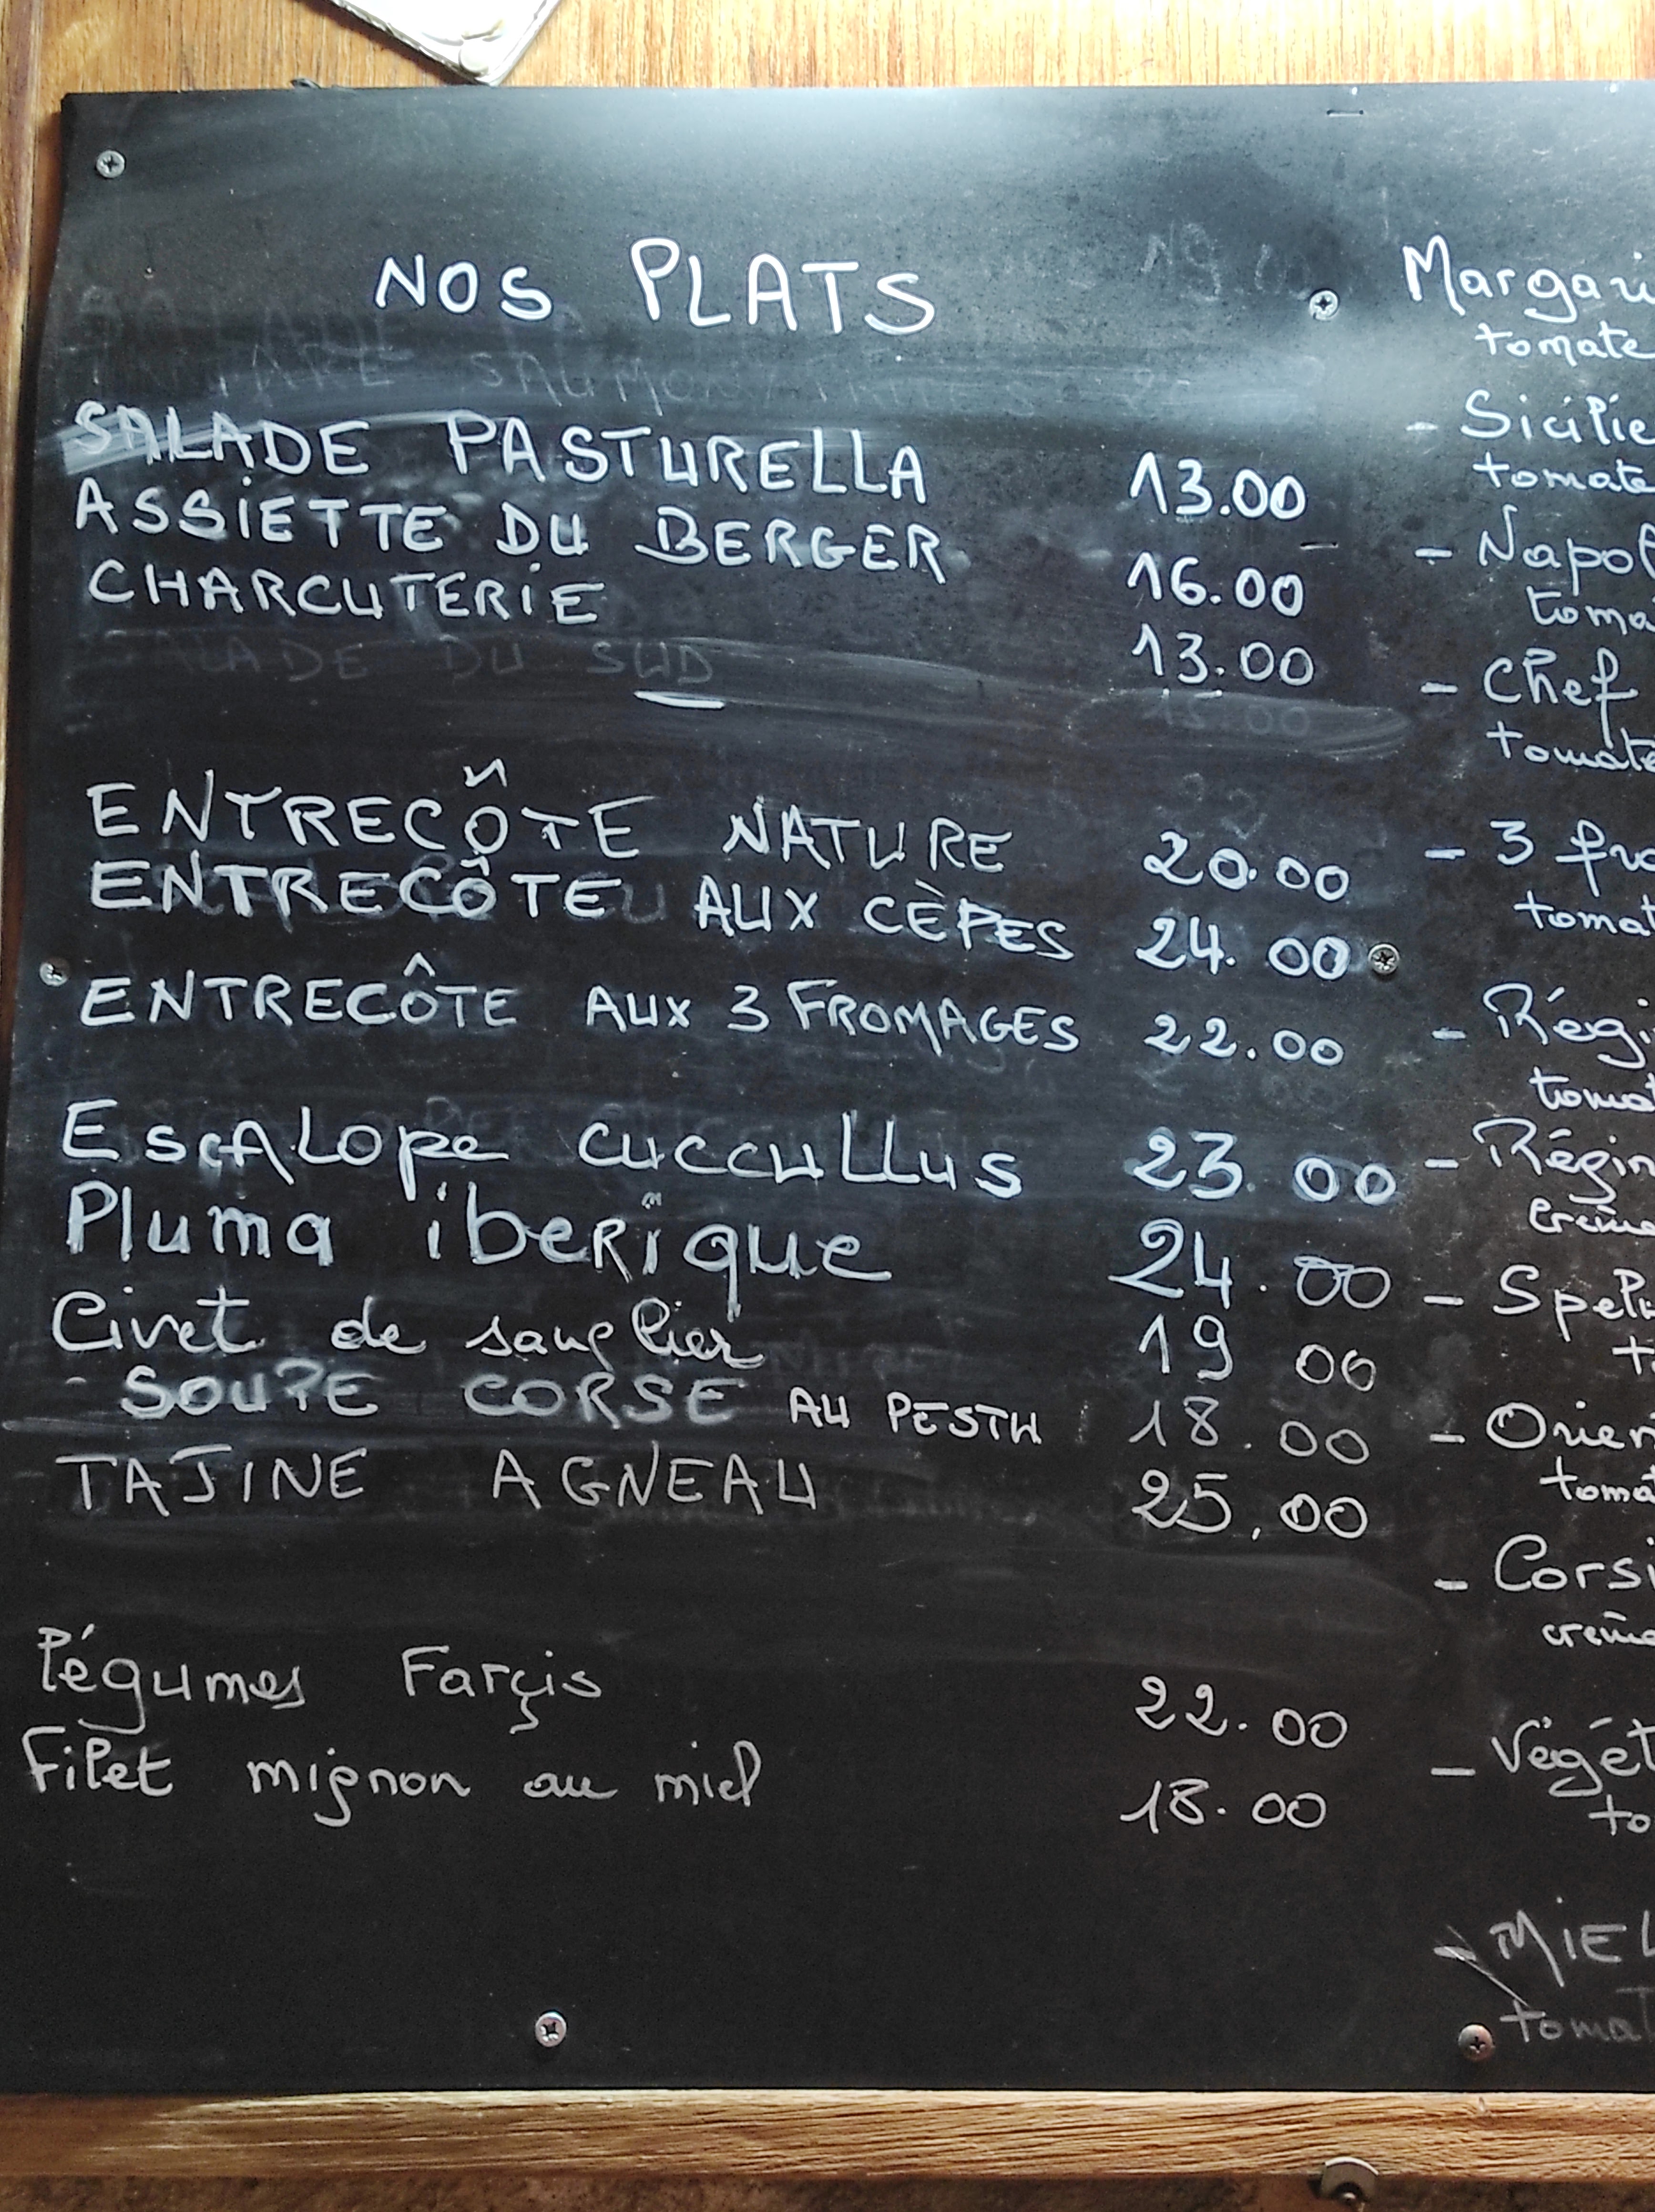 NOS PLATS
SALADE PASTURELLA 13.00
ASSIETTE DU BERGER 16.00
CHARCUTERIE 13.00
SALADE DU SUD 15.00
ENTRECÔTE NATURE 20.00
ENTRECÔTE AUX CÈPES 24.00
ENTRECÔTE AUX 3 FROMAGES 22.00
EscALope cuccuLLus 23.00
Pluma iberïque 24.00
Civet de sanglier 19 00
SOUPE CORSE AU PESTU 18.00
TAJINE AGNEAU 25,00
Légumes Farçis 22.00
Filet mignon au miel 18.00
Margari
tomate
- Sicilie
tomate
- Napol
toma
- Chef
tomate
- 3 fro
tomat
- Régi
tomat
- Régin
crème
- Spelu
to
- Orien
tomat
- Corsi
crème
- Végét
to
- MIEL
tomat